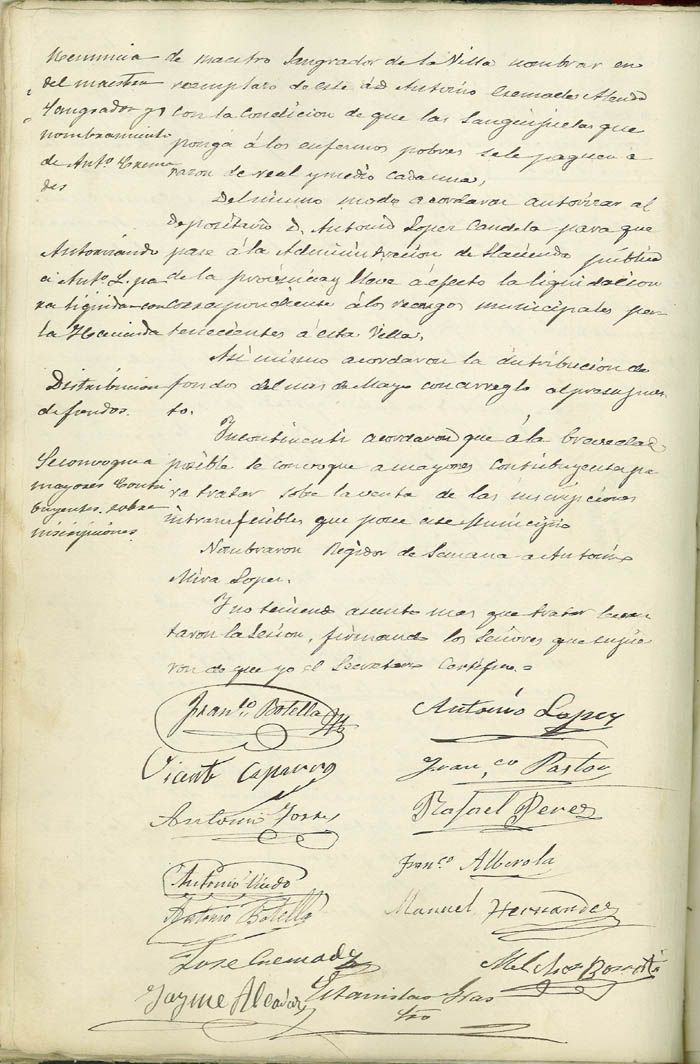 Renuncia
del maestro
Sangrador y
nombramiento
de Antº. Crema
des
de maestro Sangrador de la Villa nombrar en
reemplazo de este á D Antonio Cremades
con la condicion de que las Sanguijuelas que
ponga á los enfermos pobres se le paguen a
razon de real y medio cada una,
Del mismo modo acordaron autorizar al
Depositario D. Antonio Lopez Candela para que
Autorizando
a Antº. L. pa
ra liquidar con
la Hacienda
pase á la Administracion de Hacienda publica
de la provincia y lleve á efecto la liquidacion
correspondiente á los recargos municipales per
tenecientes á esta Villa.
Asi mismo acordaron la distribucion de
Distribucion
de fondos.
fondos del mes de Mayo con arreglo al presupues
to.
Incontinenti acordaron que á la brevedad
Se convoque a
mayores Contri
buyentes sobre
inscripciones.
posible se convoque a mayores contribuyentes pa
ra tratar sobe la venta de las inscripciones
intransferibles que posee este Municipio
Nombraron Regidor de Semana a Antonio
Mira Lopez.
Y no teniendo asunto mas que tratar levan
taron la Sesion, firmando los Señores que supie
ron de que yo el Secretario Certifico.=
Franco. Botella
Antonio Lopez
Vicente Caparros
Franco Pastor
Antonio Torres
Rafael Perez
Antonio
Franco. Alberola
Antonio Botella
Manuel Hernandez
Jose Cremades
Melchor
Jayme Alcaraz
Estanislao